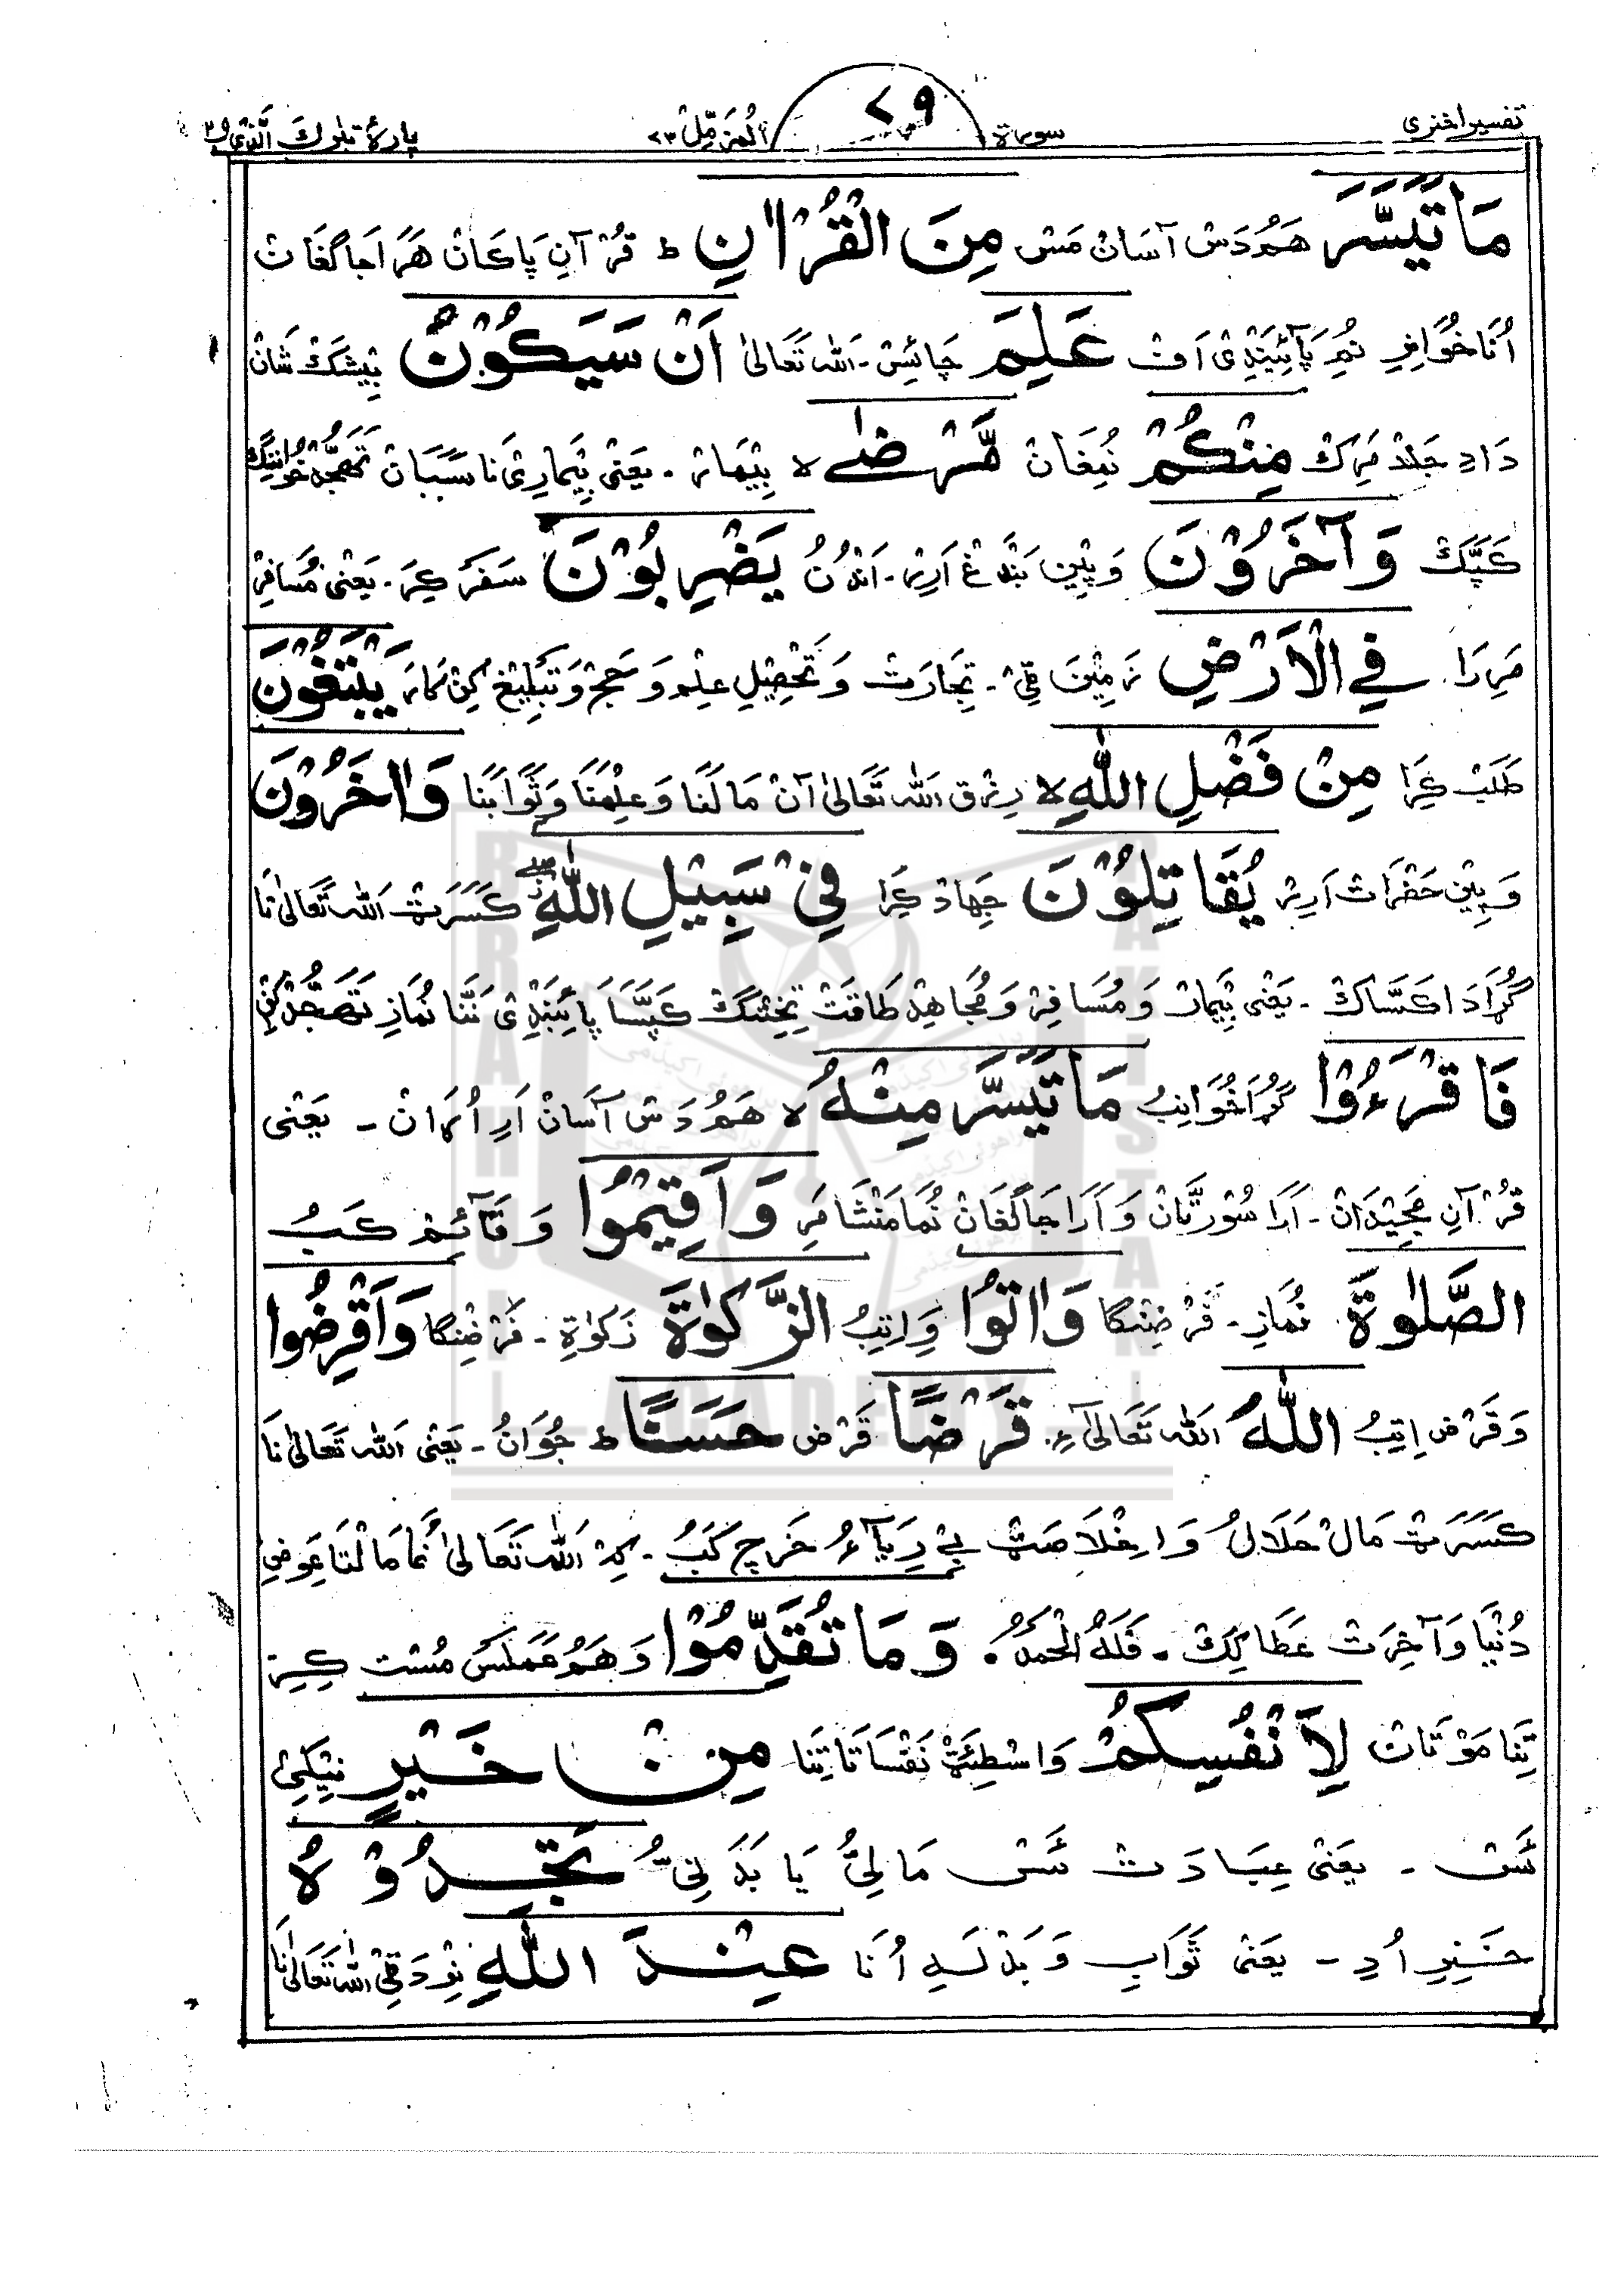 تفسیر اخنری سورة ۲۹ اَلْمُزَّمِّلْ ۷۳ پارۂ تبٰرك الَّذِی ۲۹
مَا تَیَسَّرَ هَمُودَسْ آسَانْ مَسْ مِنَ الْقُرْاٰنِ ط قُرْآنِ پَاکَانْ هَرَا جَاگَغَانْ
اُنَا خُوَافِرِ نُمِ پَابَنْدِی اَفْ عَلِمَ چَائِسْ۔ اَللّٰه تَعَالیٰ اَنْ سَیَكُوْنُ بِیْشَكْ شَانْ
دَادِ جَلْد مَرَکْ مِنْكُمْ نُمِغَانْ مَّرْضٰی لا بِیْمَارْ۔ یَعْنِی بِیْمَارِی نَا سَبَبَانْ تَهَجُّدْ خُوَانِنْگ
كَپَّكْ وَآخَرُوْنَ وَ پِیْن بَنْدَغْ اَرِیْر۔ اَنْدُنْ یَضْرِبُوْنَ سَفَرْ كِرَ۔ یَعْنِی مُسَافِرْ
مَرِرَا فِی الْاَرْضِ زَمِیْنَ ٹِیْ۔ تِجَارَتْ وَ تَحْصِیْلِ عِلْم وَ حَجْ وَ تَبْلِیْغ كِنْ نَمَازَ یَبْتَغُوْنَ
طَلَبْ كِرَا مِنْ فَضْلِ اللّٰهِ لا رِزْق اَللّٰه تَعَالیٰ آنْ مَالَنَا وَ عِلْمَنَا وَ ثَوَابَنَا وَاٰخَرُوْنَ
وَ پِیْن حَضْرَاتْ اَرِیْر یُقَاتِلُوْنَ جِهَادْ كِرَا فِیْ سَبِیْلِ اللّٰهِ كَسَرَٹْ اَللّٰه تَعَالیٰ نَا
گُڑَا دَا كَسَّاكْ۔ یَعْنِی بِیْمَارْ وَ مُسَافِرْ وَ مُجَاهِدْ طَاقَتْ تَخِنْگَكْ كَپَّسَا پَابَنْدِی نَنَّا نُمَازِ تَهَجُّدْ كِنْ
فَاقْرَءُوْا گُڑَا خُوَانِبُ مَا تَیَسَّرَ مِنْهُ لا هَمُودَسْ آسَانْ اَرِ اُڑَانْ ۔ یَعْنِی
قُرْآنِ مَجِیْدَانْ۔ اَرَا سُوْرَتَانْ وَ اَرَا جَاگَغَانْ نُمَا مَنْشَا مَرِ وَاَقِیْمُوا وَ قَائِمْ كَبُ
الصَّلٰوةَ نُمَازِ۔ فَرْضِنْگَا وَاٰتُوا وَ اِتِبُ الزَّكٰوةَ زَكٰوةِ۔ فَرْضِنْگَا وَاَقْرِضُوا
وَ قَرْض اِتِبُ اللّٰهَ اَللّٰه تَعَالیٰ ءِ قَرْضًا قَرْض حَسَنًا ط جُوَانُ۔ یَعْنِی اَللّٰه تَعَالیٰ نَا
كَسَرَٹْ مَالْ حَلَالُ وَ اِخْلَاصَٹْ بِے رِیَاءُ خَرچ كَبُ۔ كِه اَللّٰه تَعَالیٰ نُمَا مَالْنَا عِوَضِ
دُنْیَا وَ آخِرَتْ عَطَا كِكْ۔ فَلَهُ الْحَمْدُ۔ وَمَا تُقَدِّمُوْا وَ هَمُو عَمَلَسْ مُسْت كِرِ
تِنَا مَوْتَانْ لِاَنْفُسِكُمْ وَاسْطِئَٹْ نَفْسَاتَا تِنَا مِنْ خَیْرٍ نِیْكِی
ئَسْ ۔ یَعْنِی عِبَادَتْ ئَسْ مَالِیُّ یَا بَدَنِیُّ تَجِدُوْهُ
خَنِرِ اُدِ ۔ یَعْنِی ثَوَابِ وَ بَدْلَهِ اُنَا عِنْدَ اللّٰهِ نِزْدَ ٹِیْ اَللّٰه تَعَالیٰ نَا
BRAHUI ACADEMY PAKISTAN